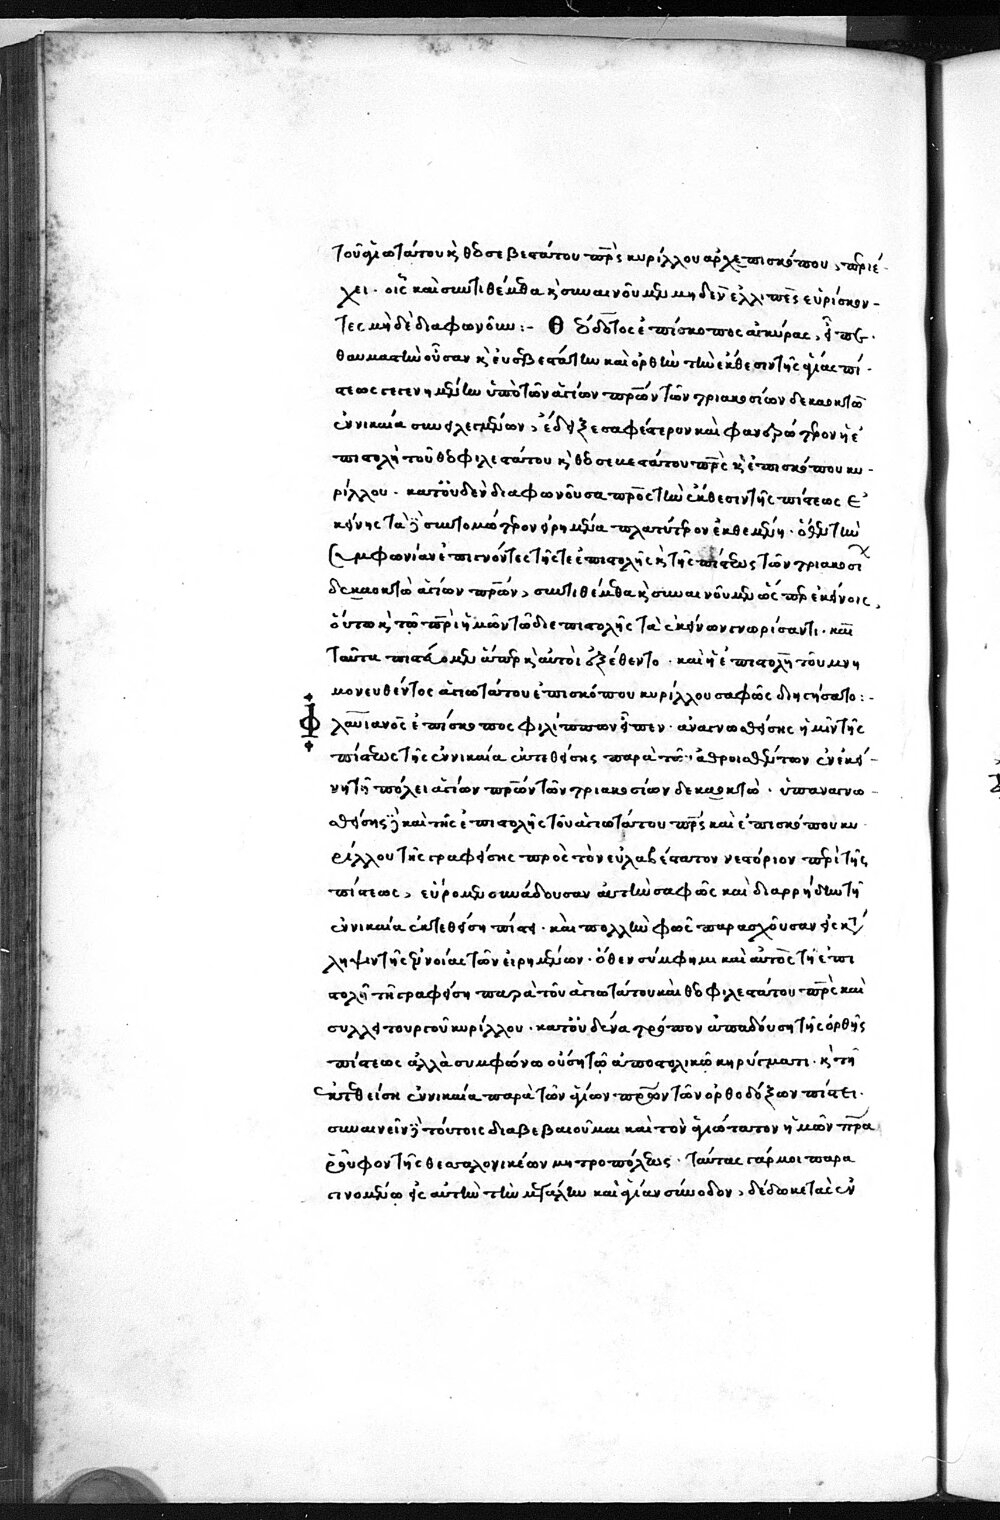 τοῦ ἁγιωτάτου κ̀ θεοσεβεστάτου πρ̅ς κυρίλλου ἀρχιεπισκόπου, περιέ-
χει. οἷς καὶ συντιθέμεθα κ̀ συναινοῦμεν μηδὲν ἐλλιπὲς εὑρίσκον-
τες μὴδὲ διαφωνοῦν :- Θεόδοτος ἐπίσκοπος ἀγκύρας, εἶπε.
θαυμαστὴν οὖσαν κ̀ εὐσεβεστάτην καὶ ὀρθὴν τὴν ἔκθεσιν τῆς ἁγίας πί-
στεως γεγενημένην ὑπὸ τῶν ἁγίων πρ̅ων τῶν τριακοσίων δεκαοκτὼ
ἐν νικαία συνελεγμένων, ἔδειξε σαφέστερον καὶ φανερώτερον ἡ ἐ
πιστολὴ τοῦ θεοφιλεστάτου κ̀ θεοσεβεστάτου πρ̅ς κ̀ ἐπισκόπου κυ-
ρίλλου. κατ' οὐδὲν διαφωνοῦσα πρὸς τὴν ἔκθεσιν τῆς πίστεως ἐ
κείνης τὰ συντομώτερον εἰρημένα πλατύτερον ἐκθεμένη. ὅθεν τὴν
συμφωνίαν ἐπιγνόντες τῆς τε ἐπιστολῆς κ̀ τῆς πίστεως τῶν τριακοσί
δεκαοκτὼ ἁγίων πρ̅ων, συντιθέμεθα κ̀ συναινοῦμεν ὥσπερ ἐκείνοις,
οὕτω κ̀ τῶ πρ̅ι ἡμῶν τῶ δι' ἐπιστολῆς τὰ ἐκείνων γνωρίσαντι. καὶ
ταῦτα πιστεύομεν ἅπερ κ̀ αὐτοὶ ἐξέθεντο. καὶ ἡ ἐπιστολὴ τοῦ μνη
μονευθέντος ἁγιωτάτου ἐπισκόπου κυρίλλου σαφῶς διηγήσατο :-
Φλαυϊανὸς ἐπίσκοπος φιλίππων εἶπεν. ἀναγνωσθείσης ἡμῖν τῆς
πίστεως τῆς ἐν νικαία ἐκτεθείσης παρὰ τῶν ἀθροισθέντων ἐν ἐκεί-
νη τῆ πόλει ἁγίων πρ̅ων τῶν τριακοσίων δεκαοκτὼ. ὑπαναγνω-
σθείσης καὶ τῆς ἐπιστολῆς τοῦ ἁγιωτάτου πρ̅ς καὶ ἐπισκόπου κυ
ρίλλου τῆς γραφείσης πρὸς τὸν εὐλαβέστατον νεστόριον περὶ τῆς
πίστεως, εὕρομεν συνάδουσαν αὐτὴν σαφῶς καὶ διαρρήδην τῆ
ἐν νικαία ἐκτεθείση πίστει. καὶ πολλὴν φῶς παρασχοῦσαν εἰς κατά
ληψιν τῆς ἐννοίας τῶν εἰρημένων. ὅθεν σύμφημι καὶ αὐτὸς τῆ ἐπι
στολῆ τῆ γραφείση παρὰ τοῦ ἁγιωτάτου καὶ θεοφιλεστάτου πρ̅ς καὶ
συλλειτουργοῦ κυρίλλου. κατ' οὐδένα τρόπον ἀπαδούση τῆς ὀρθῆς
πίστεως ἀλλὰ συμφώνω οὔση τῶ ἀποστολικῶ κηρύγματι. κ̀ τῆ
ἐκτεθείση ἐν νικαία παρὰ τῶν ἁγίων πρ̅ων τῶν ὀρθοδόξων πίστει.
συναινεῖν τούτοις διαβεβαιοῦμαι καὶ τὸν ἁγιώτατον ἡμῶν πρ̅α
ῥοῦφον τῆς θεσσαλονικέων μητροπόλεως. ταύτας γάρ μοι παρα
γινομένω εἰς αὐτὴν τὴν μεγάλην καὶ ἁγίαν σύνοδον, δέδωκε τὰς ἐν